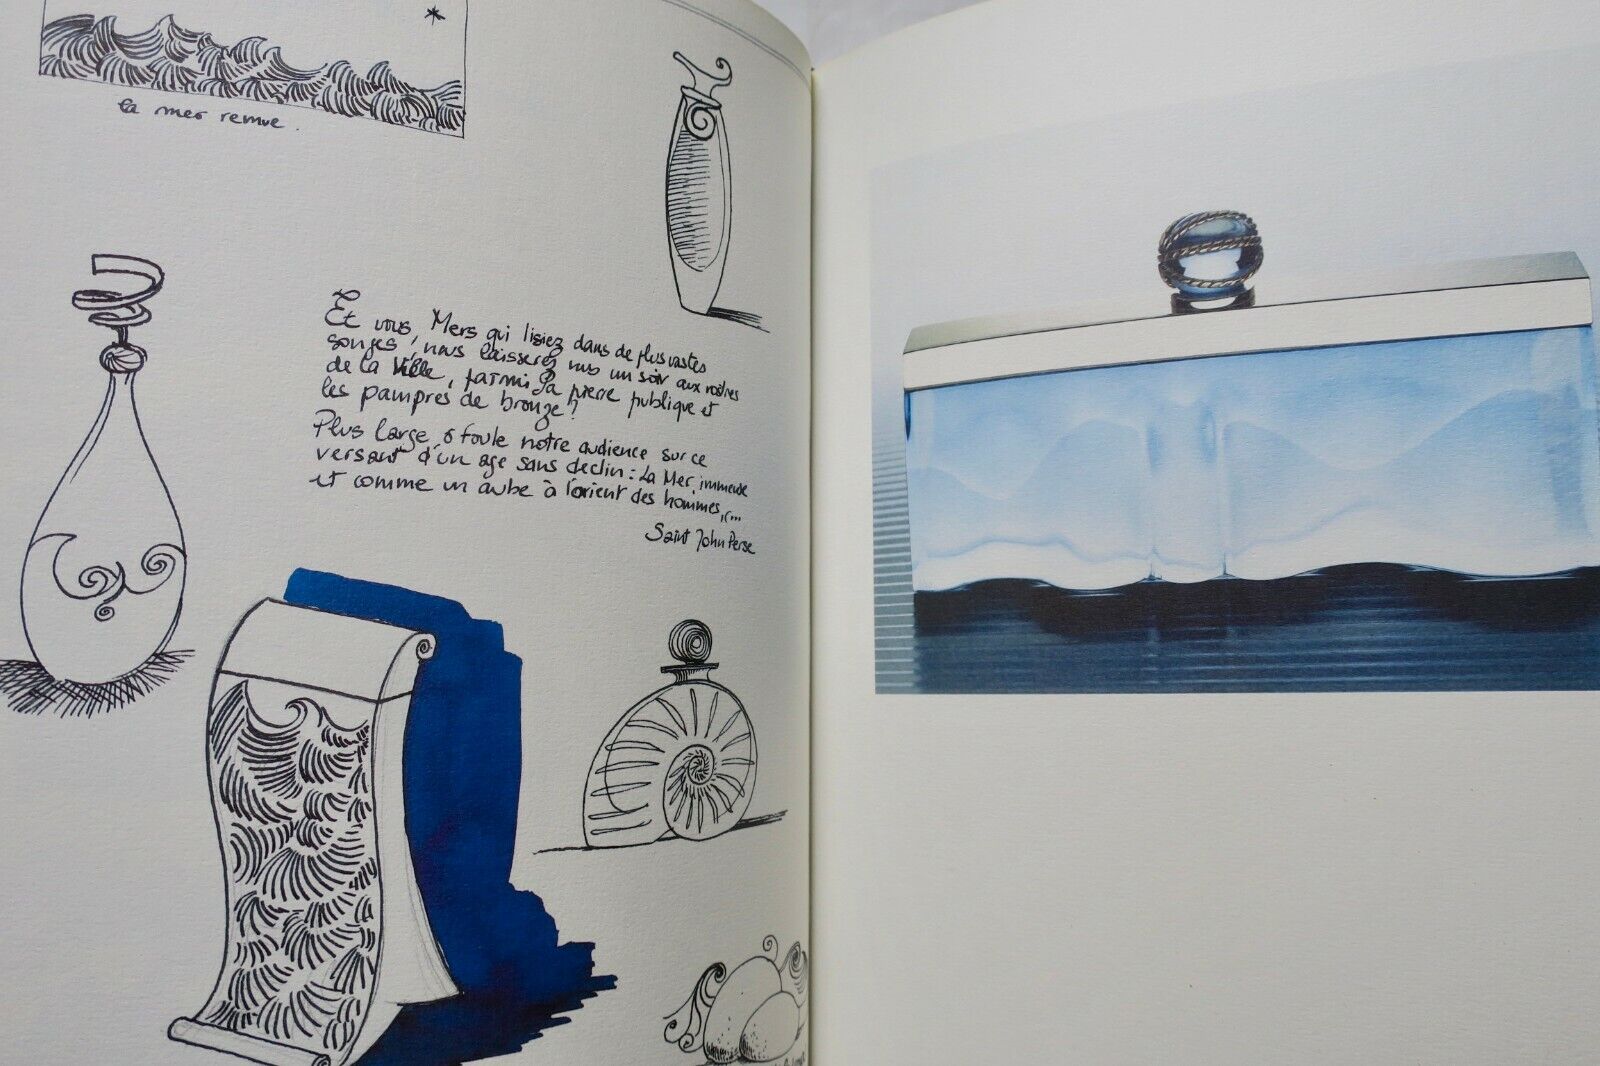 la mer remue.
Et vous, Mers qui lisiez dans de plus vastes
songes, nous laisserez vous un soir aux rostres
de la Ville, parmi la pierre publique et
les pampres de bronze?
Plus large, ô foule notre audience sur ce
versant d'un age sans declin: La Mer, immense
et comme un aube à l'orient des hommes,,...
Saint John Perse